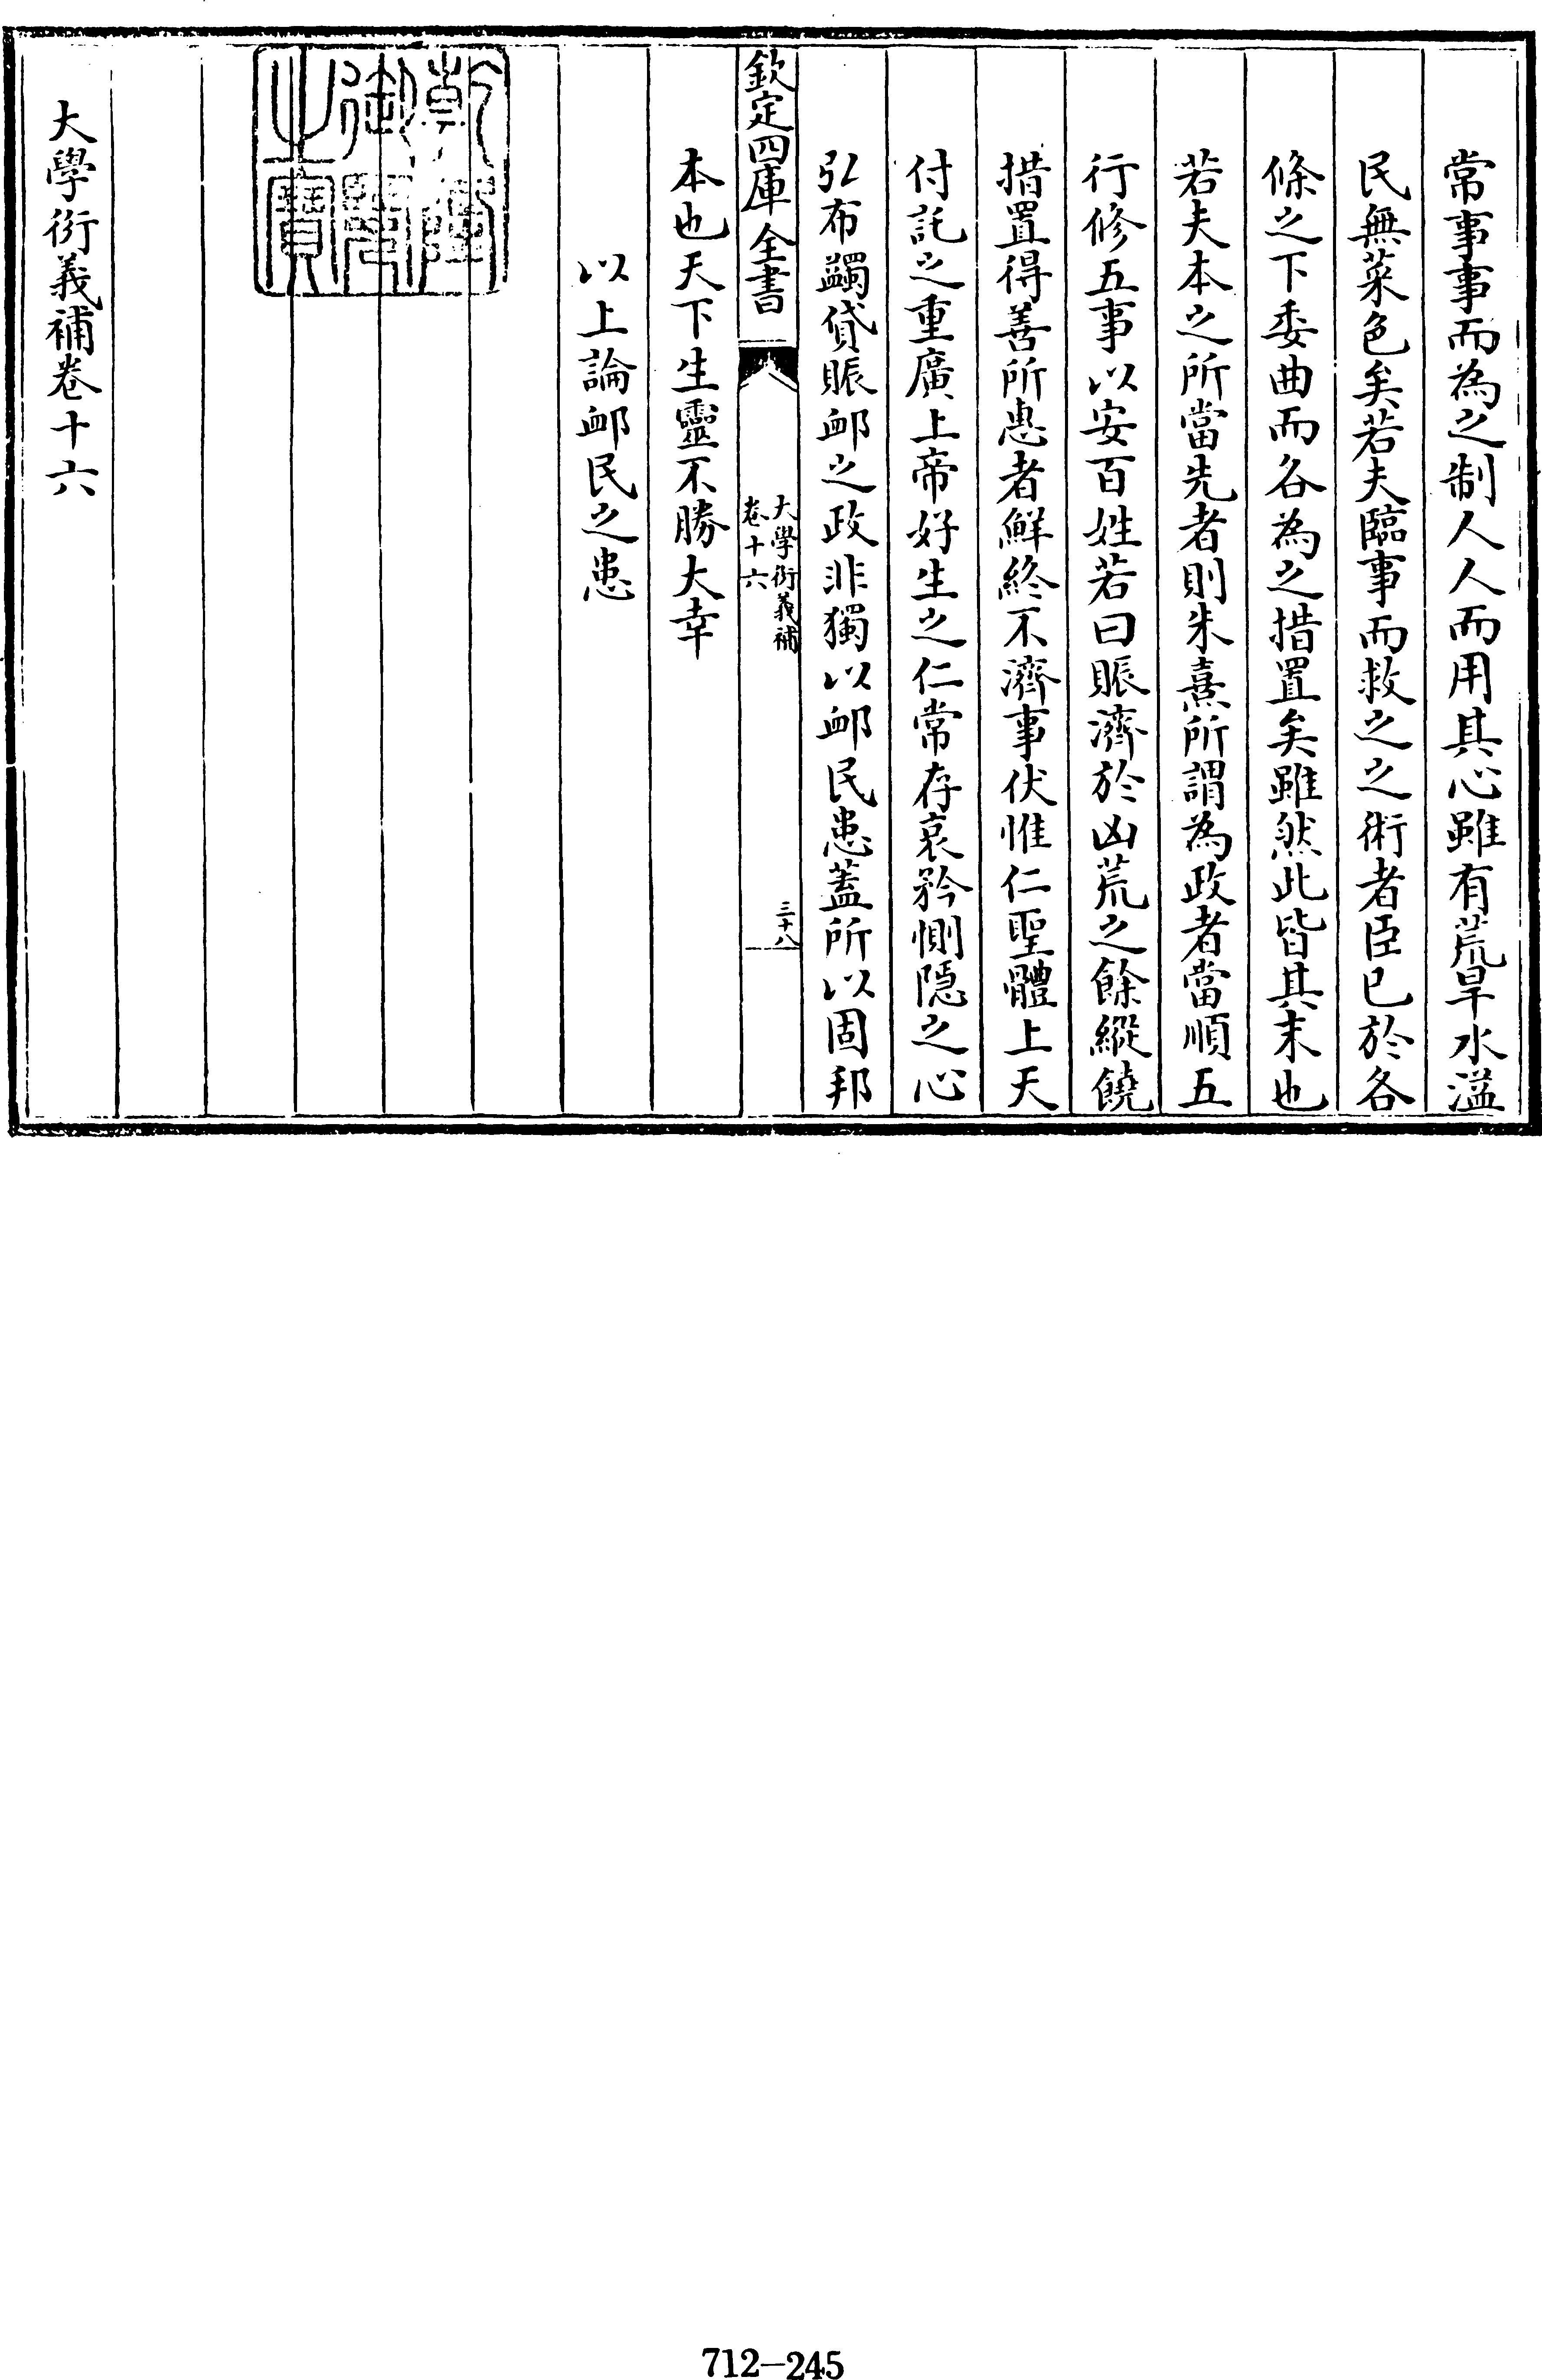 常事事而為之制人人而用其心雖有荒旱水溢
民無菜色矣若夫臨事而救之之術者臣已於各
條之下委曲而各為之措置矣雖然此皆其末也
若夫本之所當先者則朱熹所謂為政者當順五
行修五事以安百姓若曰賑濟於凶荒之餘縱饒
措置得善所惠者鮮終不濟事伏惟仁聖體上天
付託之重廣上帝好生之仁常存哀矜惻隱之心
弘布蠲貸賑卹之政非獨以卹民患蓋所以固邦
欽定四庫全書
大學衍義補
卷十六
三十八
本也天下生靈不勝大幸
以上論卹民之患
乾隆
御覽
之寶
大學衍義補卷十六
712-245